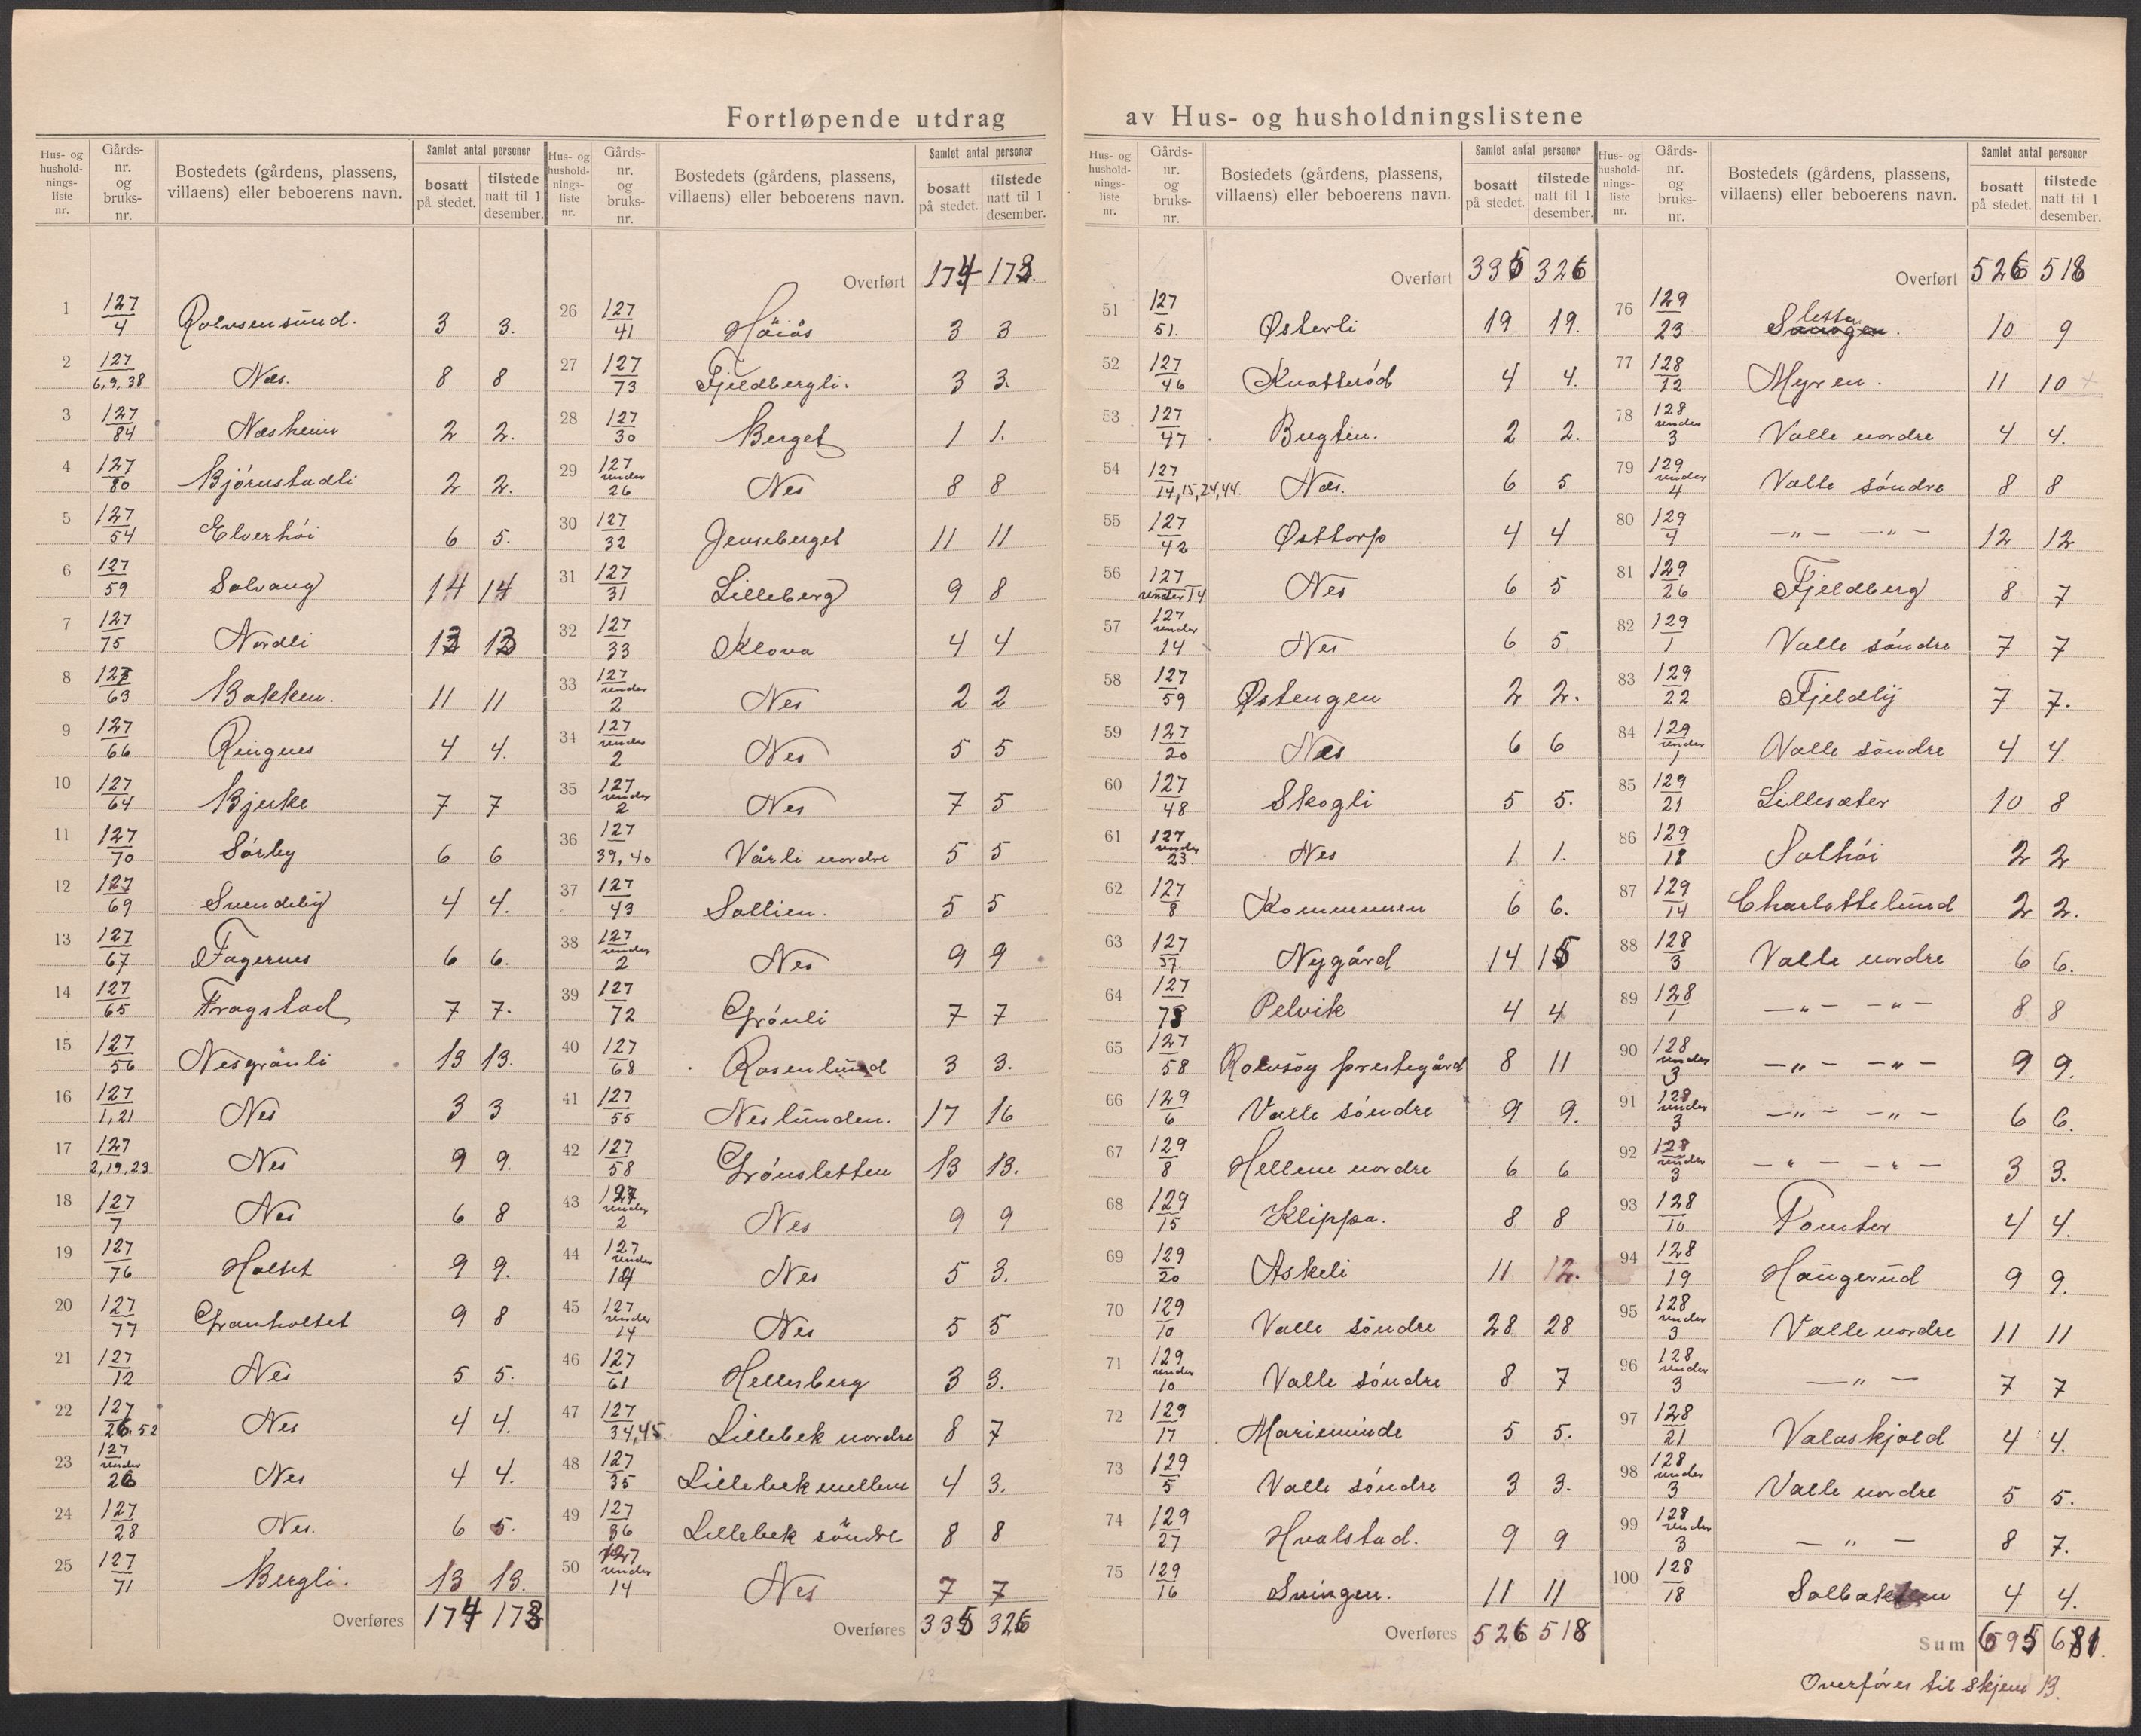 Fortløpende utdrag av Hus- og husholdningslistene
Hus- og hushold-nings-liste nr. | Gårds-nr. og bruks-nr. | Bostedets (gårdens, plassens, villaens) eller beboerens navn. | Samlet antal personer | bosatt på stedet. | tilstede natt til 1 desember.
1 127/4 Rolvsensund. 3 3.
2 127/6,9,38 Næs. 8 8
3 127/84 Næsheim 2 2.
4 127/80 Bjørnstadli 2 2.
5 127/54 Elverhöi 6 5.
6 127/59 Solvang 14 14
7 127/75 Nordli 13 13
8 127/63 Bakken. 11 11
9 127/66 Ringnes 4 4.
10 127/64 Bjerke 7 7
11 127/70 Sörby 6 6
12 127/69 Svendsby 4 4.
13 127/67 Fagernes 6 6.
14 127/65 Fragstad 7 7.
15 127/56 Nesgrönli 13 13.
16 127/1,21 Nes 3 3
17 127/2,19,23 Nes 9 9.
18 127/7 Nes 6 8
19 127/76 Holtet 9 9.
20 127/77 Granholtet 9 8
21 127/12 Nes 5 5.
22 127/26,52 Nes 4 4.
23 127/under 26 Nes 4 4.
24 127/28 Nes. 6 5.
25 127/71 Bergli. 13 13.
Overføres 174 173
Hus- og hushold-nings-liste nr. | Gårds-nr. og bruks-nr. | Bostedets (gårdens, plassens, villaens) eller beboerens navn. | Samlet antal personer | bosatt på stedet. | tilstede natt til 1 desember.
Overført 174 173.
26 127/41 Höiås 3 3
27 127/73 Fjeldbergli. 3 3.
28 127/30 Berget 1 1.
29 127/under 26 Nes 8 8
30 127/32 Jenseberget 11 11
31 127/31 Lilleberg 9 8
32 127/33 Klova 4 4
33 127/under 2 Nes 2 2
34 127/under 2 Nes 5 5
35 127/under 2 Nes 7 5
36 127/39,40 Vårli nordre 5 5
37 127/43 Sollien. 5 5
38 127/under 2 Nes 9 9
39 127/72 Grönli 7 7
40 127/68 Rosenlund 3 3.
41 127/55 Neslunden. 17 16
42 127/58 Grönsletten 13 13.
43 127/under 2 Nes 9 9
44 127/under 14 Nes 5 3.
45 127/under 14 Nes 5 5
46 127/61 Hellesberg 3 3.
47 127/34,45 Lillebek nordre 8 7
48 127/35 Lillebek mellem 4 3.
49 127/86 Lillebek söndre 8 8
50 127/under 14 Nes 7 7
Overføres 335 326
Hus- og hushold-nings-liste nr. | Gårds-nr. og bruks-nr. | Bostedets (gårdens, plassens, villaens) eller beboerens navn. | Samlet antal personer | bosatt på stedet. | tilstede natt til 1 desember.
Overført 335 326
51 127/51. Østerli 19 19.
52 127/46 Knatterød 4 4.
53 127/47 Bugten. 2 2.
54 127/14,15,24,44. Næs. 6 5
55 127/42 Østtorp 4 4
56 127/under 14 Nes 6 5
57 127/under 14 Nes 6 5
58 127/59 Østengen 2 2.
59 127/20 Næs 6 6
60 127/48 Skogli 5 5.
61 127/under 23. Nes 1 1.
62 127/8 Kommunen 6 6.
63 127/37. Nygård 14 15
64 127/78 Pelvik 4 4
65 127/58 Rolvsøy prestegård 8 11
66 129/6 Valle söndre 9 9.
67 129/8 Hellene nordre 6 6
68 129/15 Klippa. 8 8
69 129/20 Askeli 11 12.
70 129/10 Valle söndre 28 28
71 129/under 10 Valle söndre 8 7
72 129/17 Marieminde 5 5.
73 129/5 Valle söndre 3 3.
74 129/27 Hvalstad. 9 9
75 129/16 Svingen. 11 11
Overføres 526 518
Hus- og hushold-nings-liste nr. | Gårds-nr. og bruks-nr. | Bostedets (gårdens, plassens, villaens) eller beboerens navn. | Samlet antal personer | bosatt på stedet. | tilstede natt til 1 desember.
Overført 526 518
76 129/23 Sletta. 10 9
77 128/12 Myren. 11 10
78 128/under 3 Valle nordre 4 4.
79 129/under 4 Valle söndre 8 8
80 129/4 —"— —"— 12 12
81 129/26 Fjeldberg 8 7
82 129/1 Valle söndre 7 7
83 129/22 Fjeldly 7 7.
84 129/under 1 Valle söndre 4 4.
85 129/21 Lillesæter 10 8
86 129/18 Solhöi 2 2
87 129/14 Charlottelund 2 2.
88 128/3 Valle nordre 6 6.
89 128/1 —"— —"— 8 8
90 128/under 3 —"— —"— 9 9.
91 128/under 3 —"— —"— 6 6.
92 128/under 3 —"— —"— 3 3.
93 128/10 Tomter 4 4.
94 128/19 Haugerud 9 9.
95 128/under 3 Valle nordre 11 11
96 128/under 3 —"— 7 7
97 128/21 Valaskjold 4 4.
98 128/under 3 Valle nordre 5 5.
99 128/under 3 —"— 8 7.
100 128/18 Solbakken 4 4.
Sum 695 681.
Overføres til skjema B.